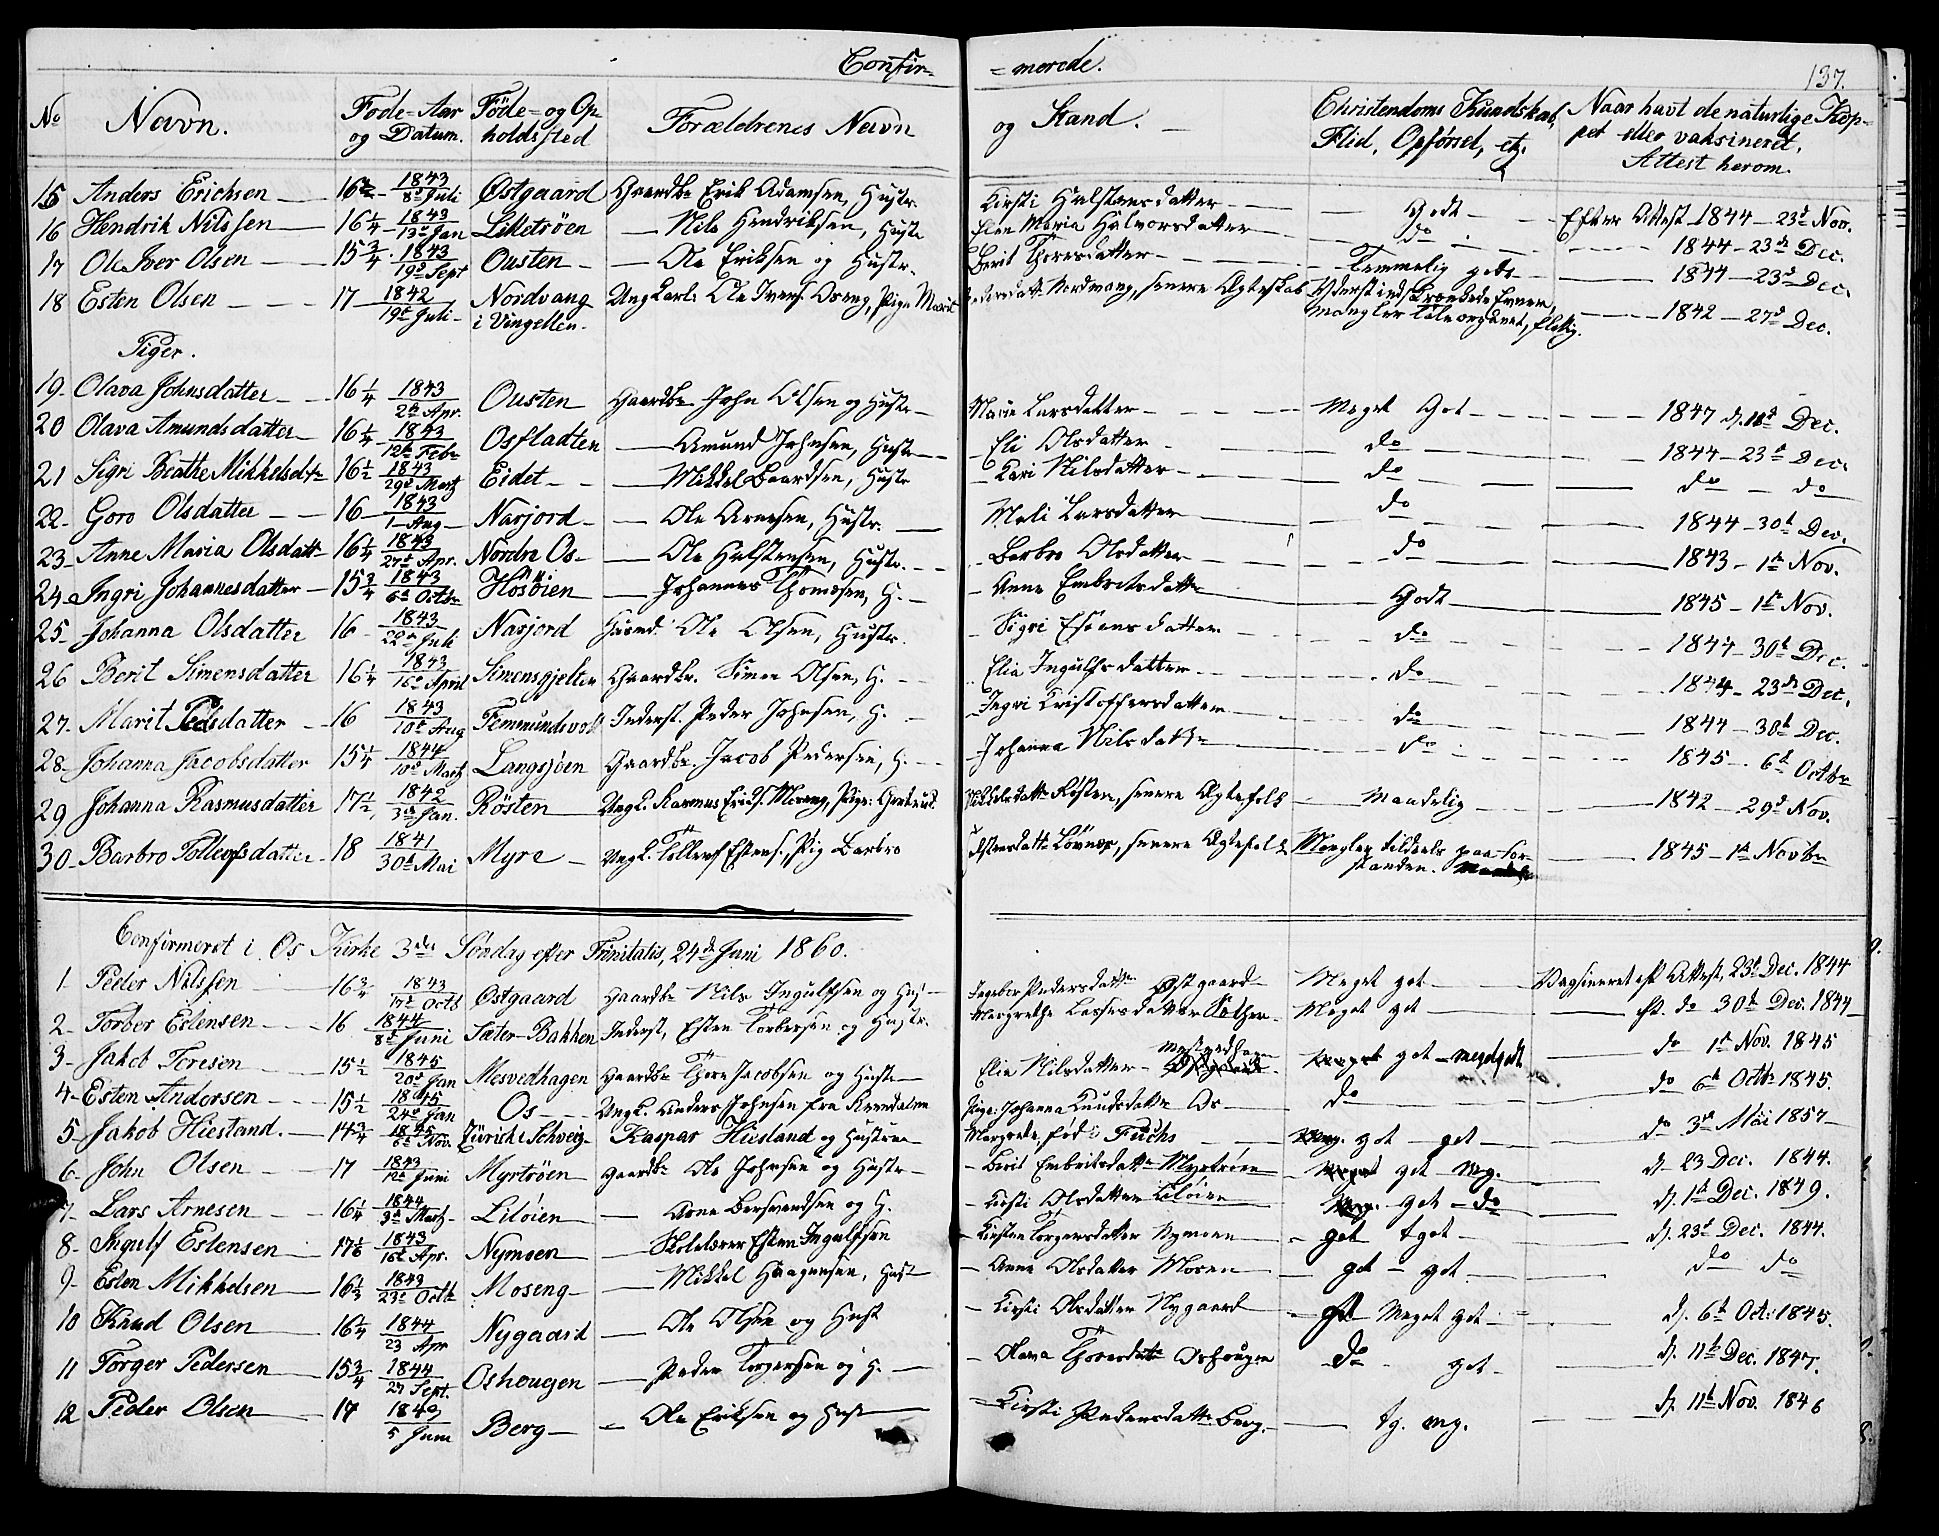 Confir- = merede. 137.
No Navn. Føde-Aar og Datum. Føde- og Opholdssted Forældrenes Navn og Stand. Christendoms Kundskab, Flid, Opførsel, etc. Naar havt de naturlige Koppet eller vaksineret, Attest herom.
15 Anders Erichsen 1843 8de Juli Østgaard Gaardbr Erik Adamsen, Hustr. Kirsti Halstensdatter Godt Efter Attest 1844 – 23d Nov.
16 Hendrik Nilssen 16 1/4 1843 13de Jan Lilletröen — Nils Hendriksen, Hustr Elen Maria Halvorsdatter do 1844 – 23de Dec.
17 Ole Iver Olsen 15 3/4 1843 19de Sept Ousten — Ole Eriksen og Hustr. Berit Thoresdatter Temmelig godt 1844 – 23d Dec.
18 Esten Olsen 17 1842 19de Juli Nordvang i Vingellen. Ungkarl. Ole Ivers. Oseng, Pige Marit Pedersdatt. Nordvang, senere Ægteskab Yderst indskrænkede Evner, mangler Taleorganet, flittig. 1842 – 27d Dec.
Piger.
19 Olava Johnsdatter 16 1/4 1843 2de Apr. Ousten Gaardbr John Olsen og Hustr Marie Larsdatter Meget Got 1847 d. 18d Dec.
20 Olava Amundsdatter 16 1/4 1843 12te Febr Osfladten — Amund Johnsen, Hustr Eli Olsdatter do 1844 – 23d Dec.
21 Sigri Beathe Mikkelsdtr 16 1/2 1843 29de Martz Eidet — Mikkel Baardsen, Hustr Kari Nilsdatter do do – do
22 Goro Olsdatter 16 1843 1 Aug Narjord — Ole Arnesen, Hustr. Mali Larsdatter do 1844 – 30d Dec.
23 Anne Maria Olsdatt 16 1/4 1843 27de Apr. Nordre Os — Ole Halstensen, Hustr. Barbro Olsdatter do 1843 – 1te Nov.
24 Ingri Johannesdatter 15 3/4 1843 6te Octbr Hösöien — Johannes Thomesen, H. Anne Embretsdatter Godt 1845 – 1te Nov.
25 Johanna Olsdatter 16 1843 22de Juli Narjord Husmd. Ole Olsen, Hustr. Sigri Estensdatter do 1844 – 30d Dec.
26 Berit Simensdatter 16 1/4 1843 16de April Simensgjelten Gaardbr. Simen Olsen, H. Elie Ingulfsdatter do 1844 – 23de Dec.
27 Marit Pedsdatter 16 1843 10de Aug Femmundsvold Inderst. Peder Johnsen, H. Ingri Kristoffersdatter do 1844 – 30d Dec.
28 Johanna Jacobsdatter 15 1/4 1844 10de Martz Langsjøen Gaardbr. Jacob Pedersen, H. Johanna Nilsdatter do 1845 – 6d Octbr
29 Johanna Rasmusdatter 17 1/2 1842 3de Jan. Rösten Ungk. Rasmus Erichs. Moseng, Pige: Gertrud. Mikkelsdattr Rösten, senere Ægtefolk Maadelig 1842 – 29d Nov.
30 Barbro Tollefsdatter 18 1841 30te Mai Myre Ungk. Tollef Estens., Pig Barbro Estensdattr, senere Ægtefolk Mangler tildeels paa Forstanden. 1845 – 1te Novbr
Confirmeret i Os Kirke 3die Söndag efter Trinitatis, 24de Juni 1860.
1 Peder Nilssen 16 3/4 1843 Octb Østgaard Gaardbr Nils Ingulfsen og Hust Ingebor Pedersdattr Østgaard Meget got Vaxineret eft Attest, 23d Dec. 1844
2 Torber Estensen 16 1844 8de Juni Sæter-Bakken Inderst, Esten Torbersen og Hustr. Margrethe Lassesdatter Sether Meget got eft. do 30te Dec. 1844
3 Jakob Toresen 15 1/2 1845 20de Jan Mesvedhagen Gaardbr Thore Jacobsen og Hustr Elie Nilsdatter got – megetgodt do 1te Nov. 1845
4 Esten Andersen 15 1/2 1845 24de Jan Os Ungk. Anders Johnsen fra Pige: Johanna Knudsdatter Os do do 6te Octbr 1845.
5 Jakob Hiestand. 14 3/4 1845 Nov. Zürich i Schveig Kaspar Hiestand og Hustrue Margrete, född Fuchs got – got do 3de Mai 1857
6 John Olsen 17 1843 12te Juni Myrtröen Gaardbr Ole Johnsen og Hustr Berit Embritsdattr Myrtröen got Meg. d. 23 Dec. 1844.
7 Lars Arnesen 16 1/4 1844 3de Martz Liloien — Arne Bersvendsen og H. Kirsti Olsdatter Liloien got – do d. 1te Dec. 1849.
8 Ingulf Estensen 17 1/6 1843 16te Apr. Nymoen — Skolelærer Esten Ingulfsen Kirsten Torgersdatter Nymoen got tgot d. 23d Dec. 1844.
9 Esten Mikkelsen 16 2/3 1843 23de Octb Moseng — Mikkel Haagensen, Hust Anne Olsdatter Mosen got – got do do
10 Knud Olsen 16 1/4 1844 23 Apr Nygaard — Ole Olsen og Hust Kirsti Olsdatter Nygaard got Meget got d. 6te Oct: 1845.
11 Torger Pedersen 15 3/4 1844 27 Sept. Oshougen — Peder Torgersen og H. Olava Thoresdattr Oshougen do got d. 11te Dec. 1847.
12 Peder Olsen 17 1843 5 Juni Berg — Ole Eriksen og Hust Kirsti Pedersdattr Berg. tg. mg. d. 11te Nov. 1846